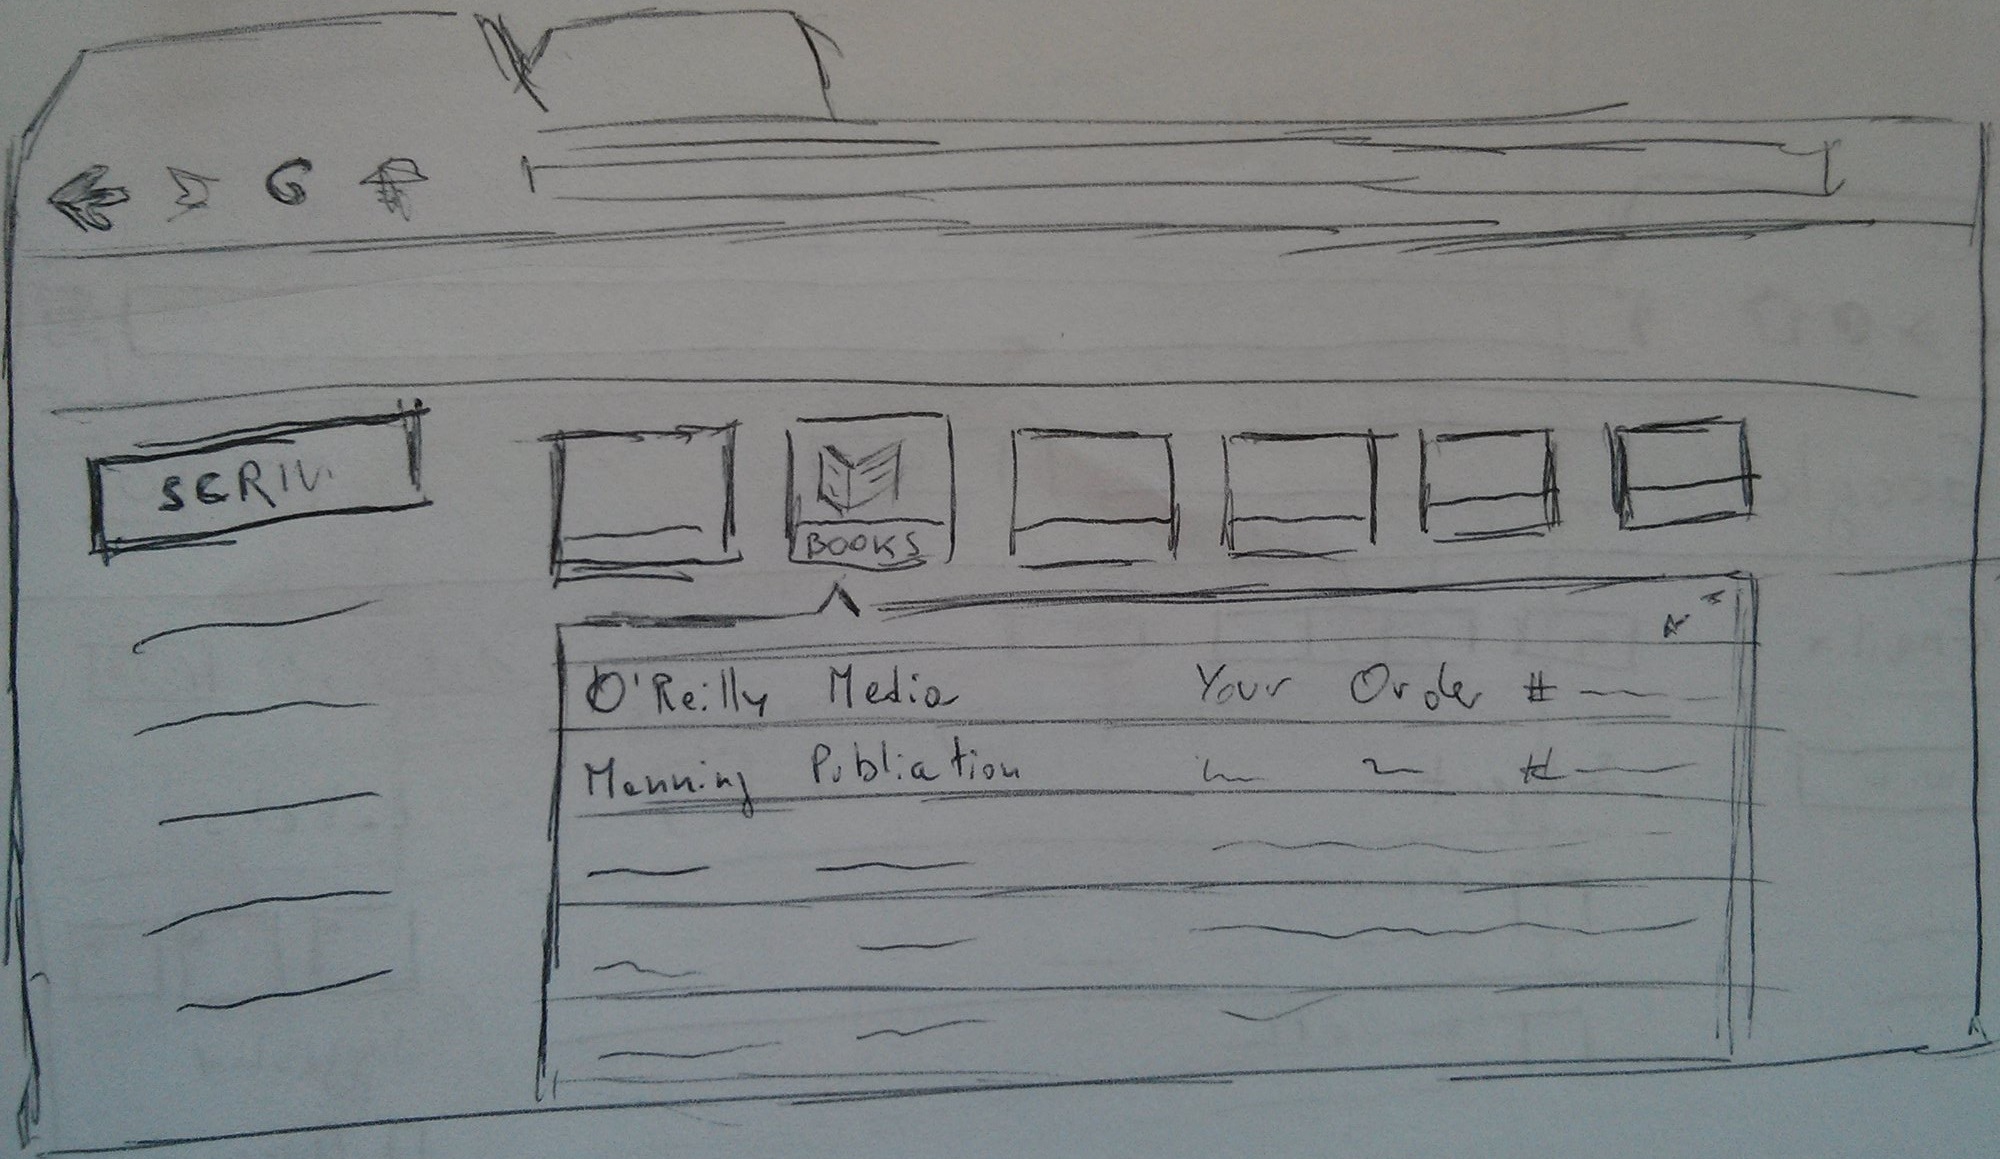 SCRIV.
BOOKS
O'Reilly Media Your Order #
Manning Publiation #